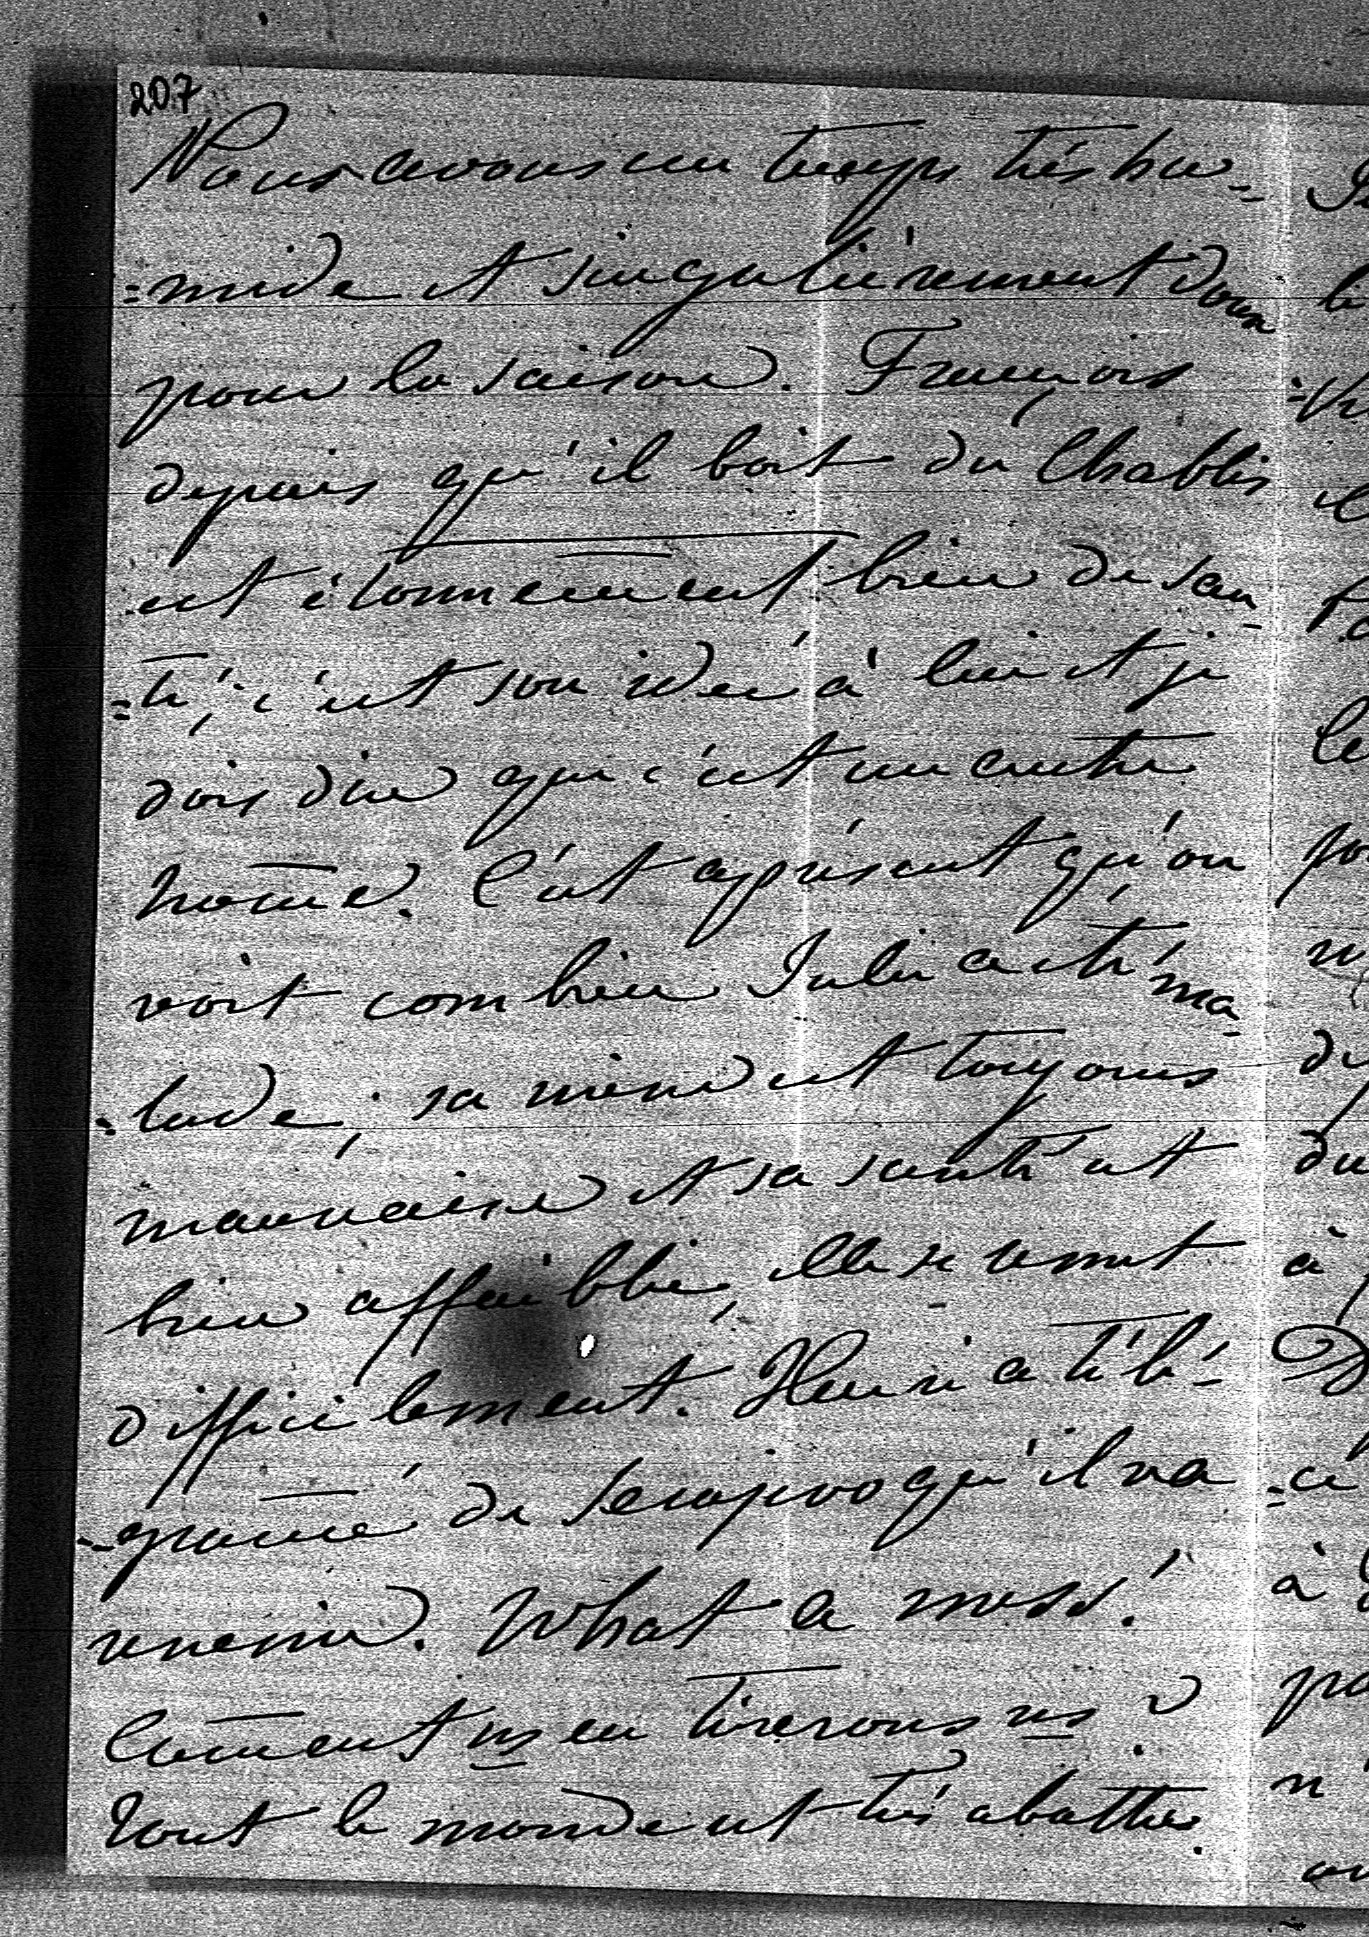 207
Nous avons un temps très hu-
=mide et singulièrement doux
pour la saison. François
depuis qu'il boit du Chablis
est étonnem̄ent bien de san-
=té; c'est son idée à lui et je
dois dire que c'est un autre
hom̄e. C'est àprésent qu'on
voit combien Julie a été ma-
=lade; sa mine est toujours
mauvaise et sa santé est
bien affaiblie, elle se remet
difficilement. Henri a télé-
=gram̄é de Serajevo qu'il va
revenir. What a mess!
Com̄ent ns en tirerons ns?
Tout le monde est très abattu.